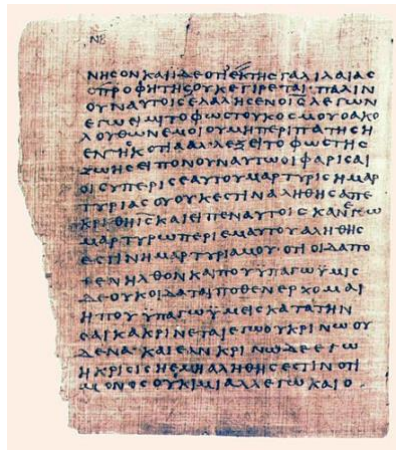 ΝΒ
ΝΗϹΟΝ ΚΑΙ ΪΔΕ ΟΤΙ ΕΚ ΤΗϹ ΓΑΛΙΛΑΙΑϹ
Ο ΠΡΟΦΗΤΗϹ ΟΥΚ ΕΓΙΡΕΤΑΙ· ΠΑΛΙΝ
ΟΥΝ ΑΥΤΟΙϹ ΕΛΑΛΗϹΕΝ Ο Ι̅Ϲ̅ ΛΕΓΩΝ
ΕΓΩ ΕΙΜΙ ΤΟ ΦΩϹ ΤΟΥ ΚΟϹΜΟΥ Ο ΑΚΟ
ΛΟΥΘΩΝ ΕΜΟΙ ΟΥ ΜΗ ΠΕΡΙΠΑΤΗϹΗ
ΕΝ ΤΗ ϹΚΟΤΙΑ ΑΛΛ ΕΞΕΙ ΤΟ ΦΩϹ ΤΗϹ
ΖΩΗϹ ΕΙΠΟΝ ΟΥΝ ΑΥΤΩ ΟΙ ΦΑΡΙϹΑΙ
ΟΙ ϹΥ ΠΕΡΙ ϹΕΑΥΤΟΥ ΜΑΡΤΥΡΙϹ Η ΜΑΡ
ΤΥΡΙΑ ϹΟΥ ΟΥΚ ΕϹΤΙΝ ΑΛΗΘΗϹ ΑΠΕ
ΚΡΙΘΗ Ι̅Ϲ̅ ΚΑΙ ΕΙΠΕΝ ΑΥΤΟΙϹ ΚΑΝ ΕΓΩ
ΜΑΡΤΥΡΩ ΠΕΡΙ ΕΜΑΥΤΟΥ ΑΛΗΘΗϹ
ΕϹΤΙΝ Η ΜΑΡΤΥΡΙΑ ΜΟΥ· ΟΤΙ ΟΙΔΑ ΠΟ
ΘΕΝ ΗΛΘΟΝ ΚΑΙ ΠΟΥ ΫΠΑΓΩ ΫΜΙϹ
ΔΕ ΟΥΚ ΟΙΔΑΤΑΙ ΠΟΘΕΝ ΕΡΧΟΜΑΙ
Η ΠΟΥ ΫΠΑΓΩ ΫΜΕΙϹ ΚΑΤΑ ΤΗΝ
ϹΑΡΚΑ ΚΡΙΝΕΤΑΙ ΕΓΩ ΟΥ ΚΡΙΝΩ ΟΥ
ΔΕΝΑ· ΚΑΙ ΕΑΝ ΚΡΙΝΩ ΔΕ ΕΓΩ
Η ΚΡΙϹΙϹ Η ΕΜΗ ΑΛΗΘΗϹ ΕϹΤΙΝ ΟΤΙ
ΜΟΝΟϹ ΟΥΚ ΙΜΙ ΑΛΛ ΕΓΩ ΚΑΙ Ο ·